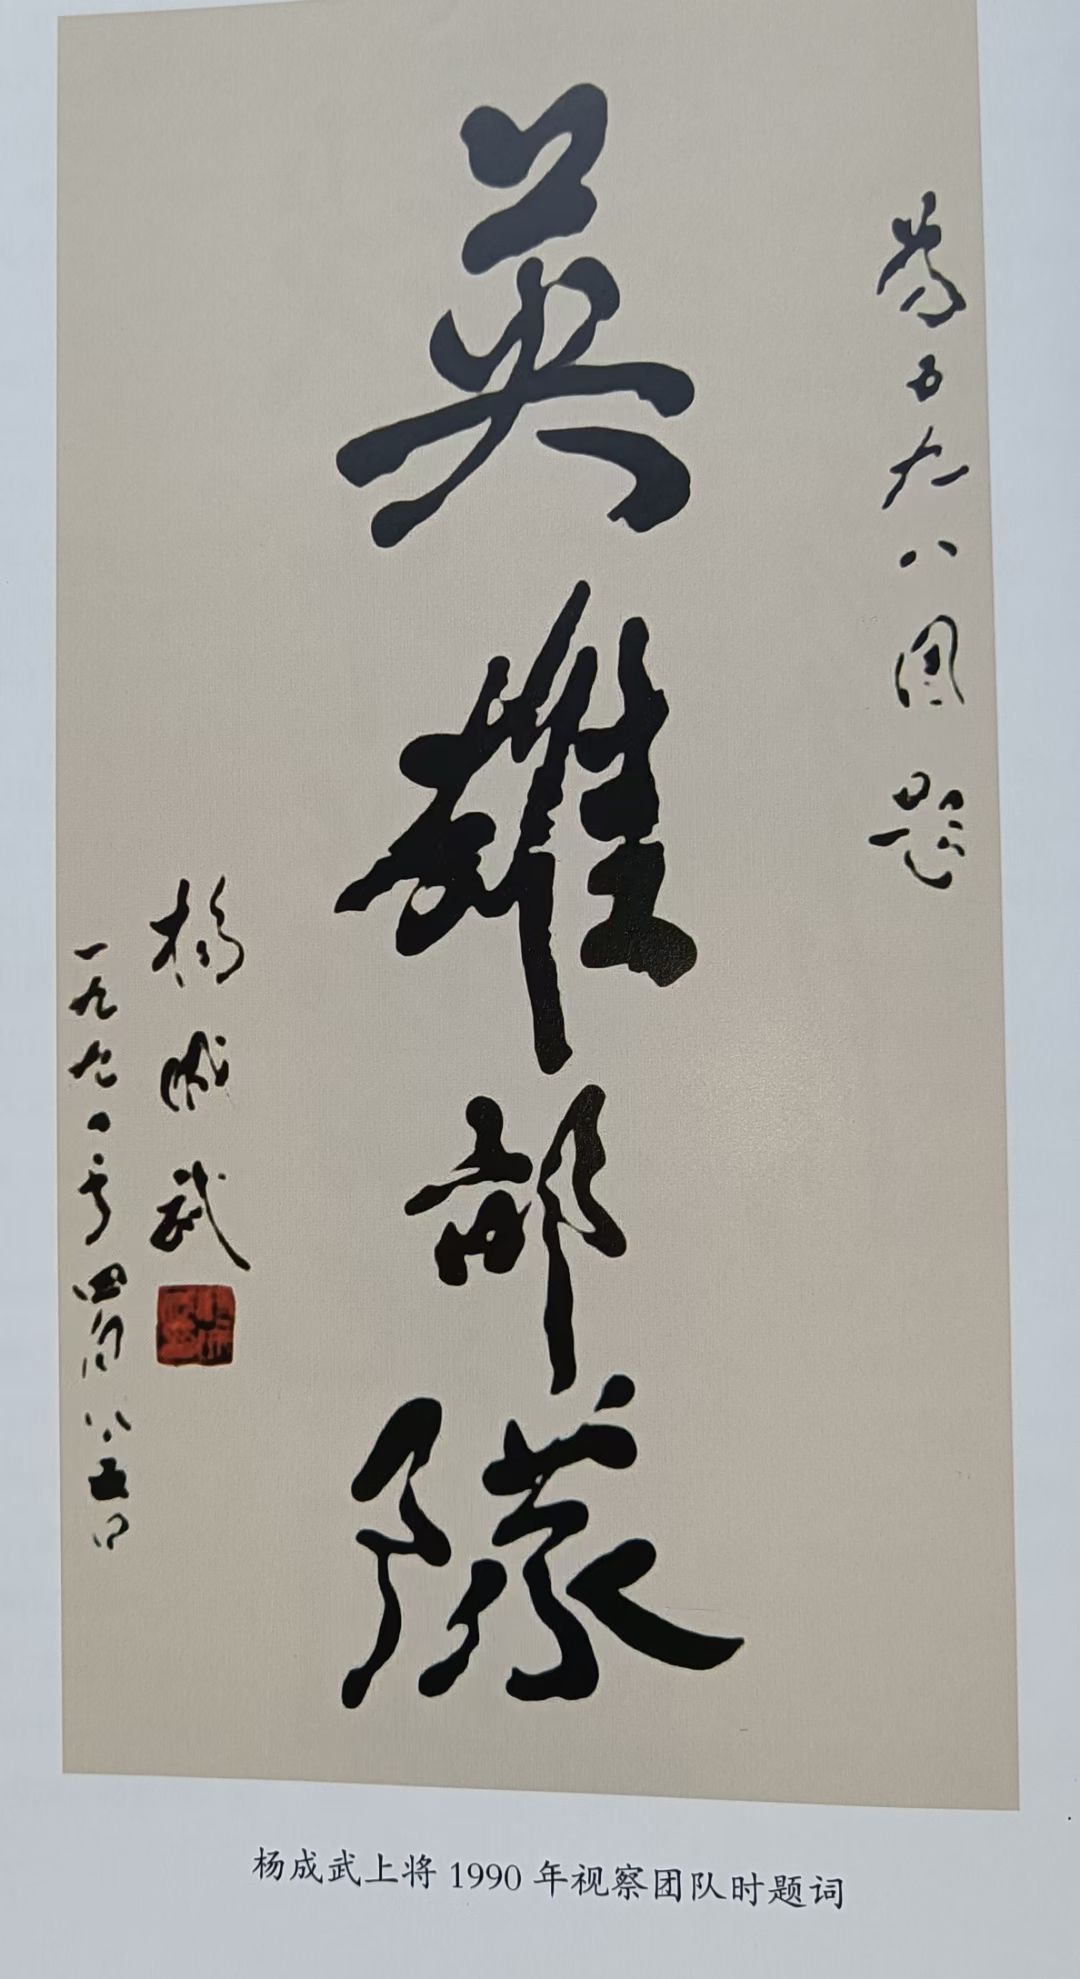 為五九八團題
英雄部隊
楊成武
一九九〇年四月 五日
杨成武上将1990年视察团队时题词